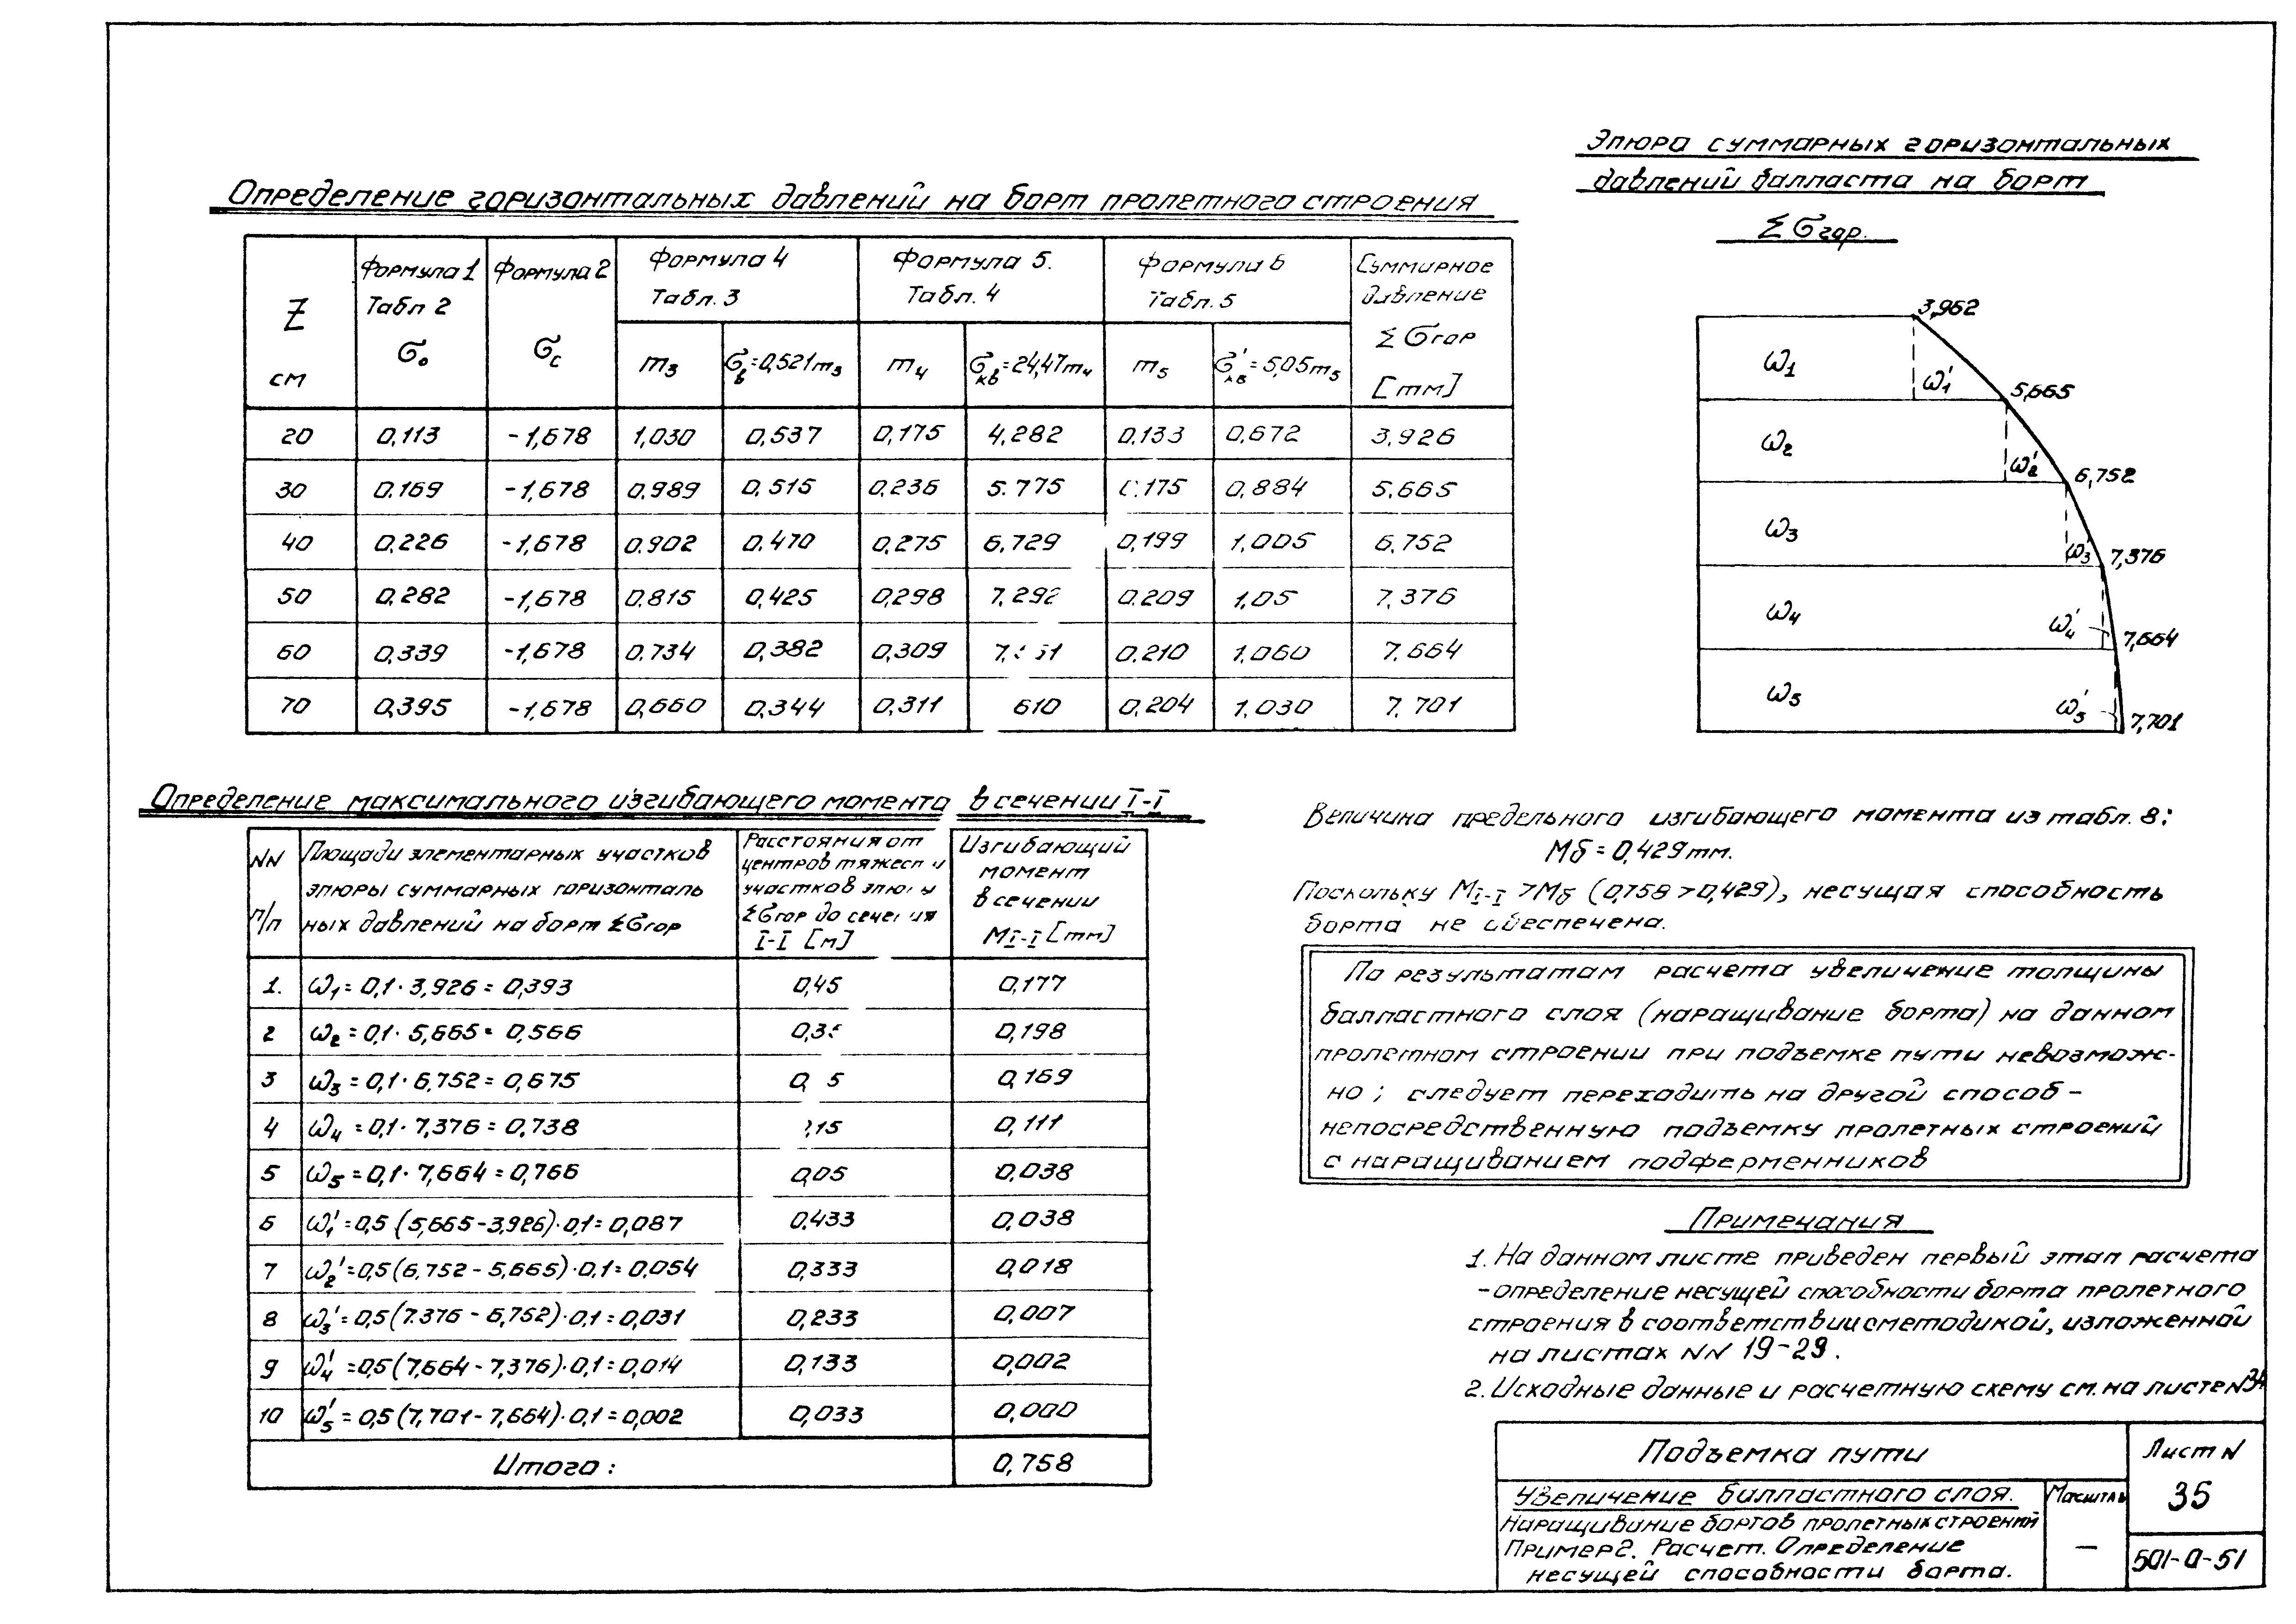 Определение горизонтальных давлений на борт пролетного строения
Z см | Формула 1 Табл 2 σ₀ | Формула 2 σс | Формула 4 Табл. 3 | Формула 5. Табл. 4 | Формула 6 Табл. 5 | Суммарное давление Σσгор [тм]
m₃ | σв=0,521m₃ | m₄ | σкв=24,47m₄ | m₅ | σ'кв=5,05m₅
20 | 0,113 | -1,678 | 1,030 | 0,537 | 0,175 | 4,282 | 0,133 | 0,672 | 3,926
30 | 0.169 | -1,678 | 0,989 | 0,515 | 0,236 | 5.775 | 175 | 0,884 | 5,665
40 | 0,226 | -1,678 | 0,902 | 0,470 | 0,275 | 6,729 | 0,199 | 1,005 | 6,752
50 | 0,282 | -1,678 | 0,815 | 0,425 | 0,298 | 7,292 | 0.209 | 1,05 | 7,376
60 | 0,339 | -1,678 | 0.734 | 0,382 | 0,309 | | 0.210 | 1,060 | 7,664
70 | 0,395 | -1,678 | 0,660 | 0,344 | 0,311 | 610 | 0,204 | 1,030 | 7,701
Эпюра суммарных горизонтальных
давлений балласта на борт
Σσгор.
3,962
ω₁ ω'₁ 5,665
ω₂ ω'₂ 6,752
ω₃ ω'₃ 7,376
ω₄ ω'₄ 7,664
ω₅ ω'₅ 7,701
Определение максимального изгибающего момента в сечении I-I
NN п/п | Площади элементарных участков эпюры суммарных горизонталь ных давлений на борт Σσгор | Расстояния от центров тяжести участков эпюру Σσгор до сечения I-I [м] | Изгибающий момент в сечении MI-I [тм]
1. | ω₁= 0,1·3,926 = 0,393 | 0,45 | 0,177
2 | ω₂= 0,1·5,665 = 0,566 | 0,35 | 0,198
3 | ω₃=0,1·6,752 = 0,675 | 0, 5 | 0,169
4 | ω₄=0,1·7,376 = 0,738 | ,15 | 0,111
5 | ω₅=0,1·7,664 = 0,766 | 0,05 | 0,038
6 | ω'₁=0,5(5,665-3,926)·0,1=0,087 | 0,433 | 0,038
7 | ω'₂=0,5(6,752-5,665)·0,1=0,054 | 0,333 | 0,018
8 | ω'₃=0,5(7.376-6,752)·0,1=0,031 | 0,233 | 0,007
9 | ω'₄=0,5(7,664-7,376)·0,1=0,014 | 0,133 | 0,002
10 | ω'₅=0,5(7,701-7,664)·0,1=0,002 | 0,033 | 0,000
Итого: | 0,758
Величина предельного изгибающего момента из табл. 8:
Мб = 0,429тм.
Поскольку MI-I >Мб (0,758 >0,429), несущая способность
борта не обеспечена.
По результатам расчета увеличение толщины
балластного слоя (наращивание борта) на данном
пролетном строении при подъемке пути невозмож-
но; следует переходить на другой способ -
непосредственную подъемку пролетных строений
с наращиванием подферменников
Примечания
1. На данном листе приведен первый этап расчета
-определение несущей способности борта пролетного
строения в соответствии с методикой, изложенной
на листах NN 19-29.
2. Исходные данные и расчетную схему см. на листе N34
Подъемка пути
Лист N
35
Увеличение балластного слоя.
Масштаб
Наращивание бортов пролетных строений
Пример 2. Расчет. Определение
—
несущей способности борта.
501-0-51